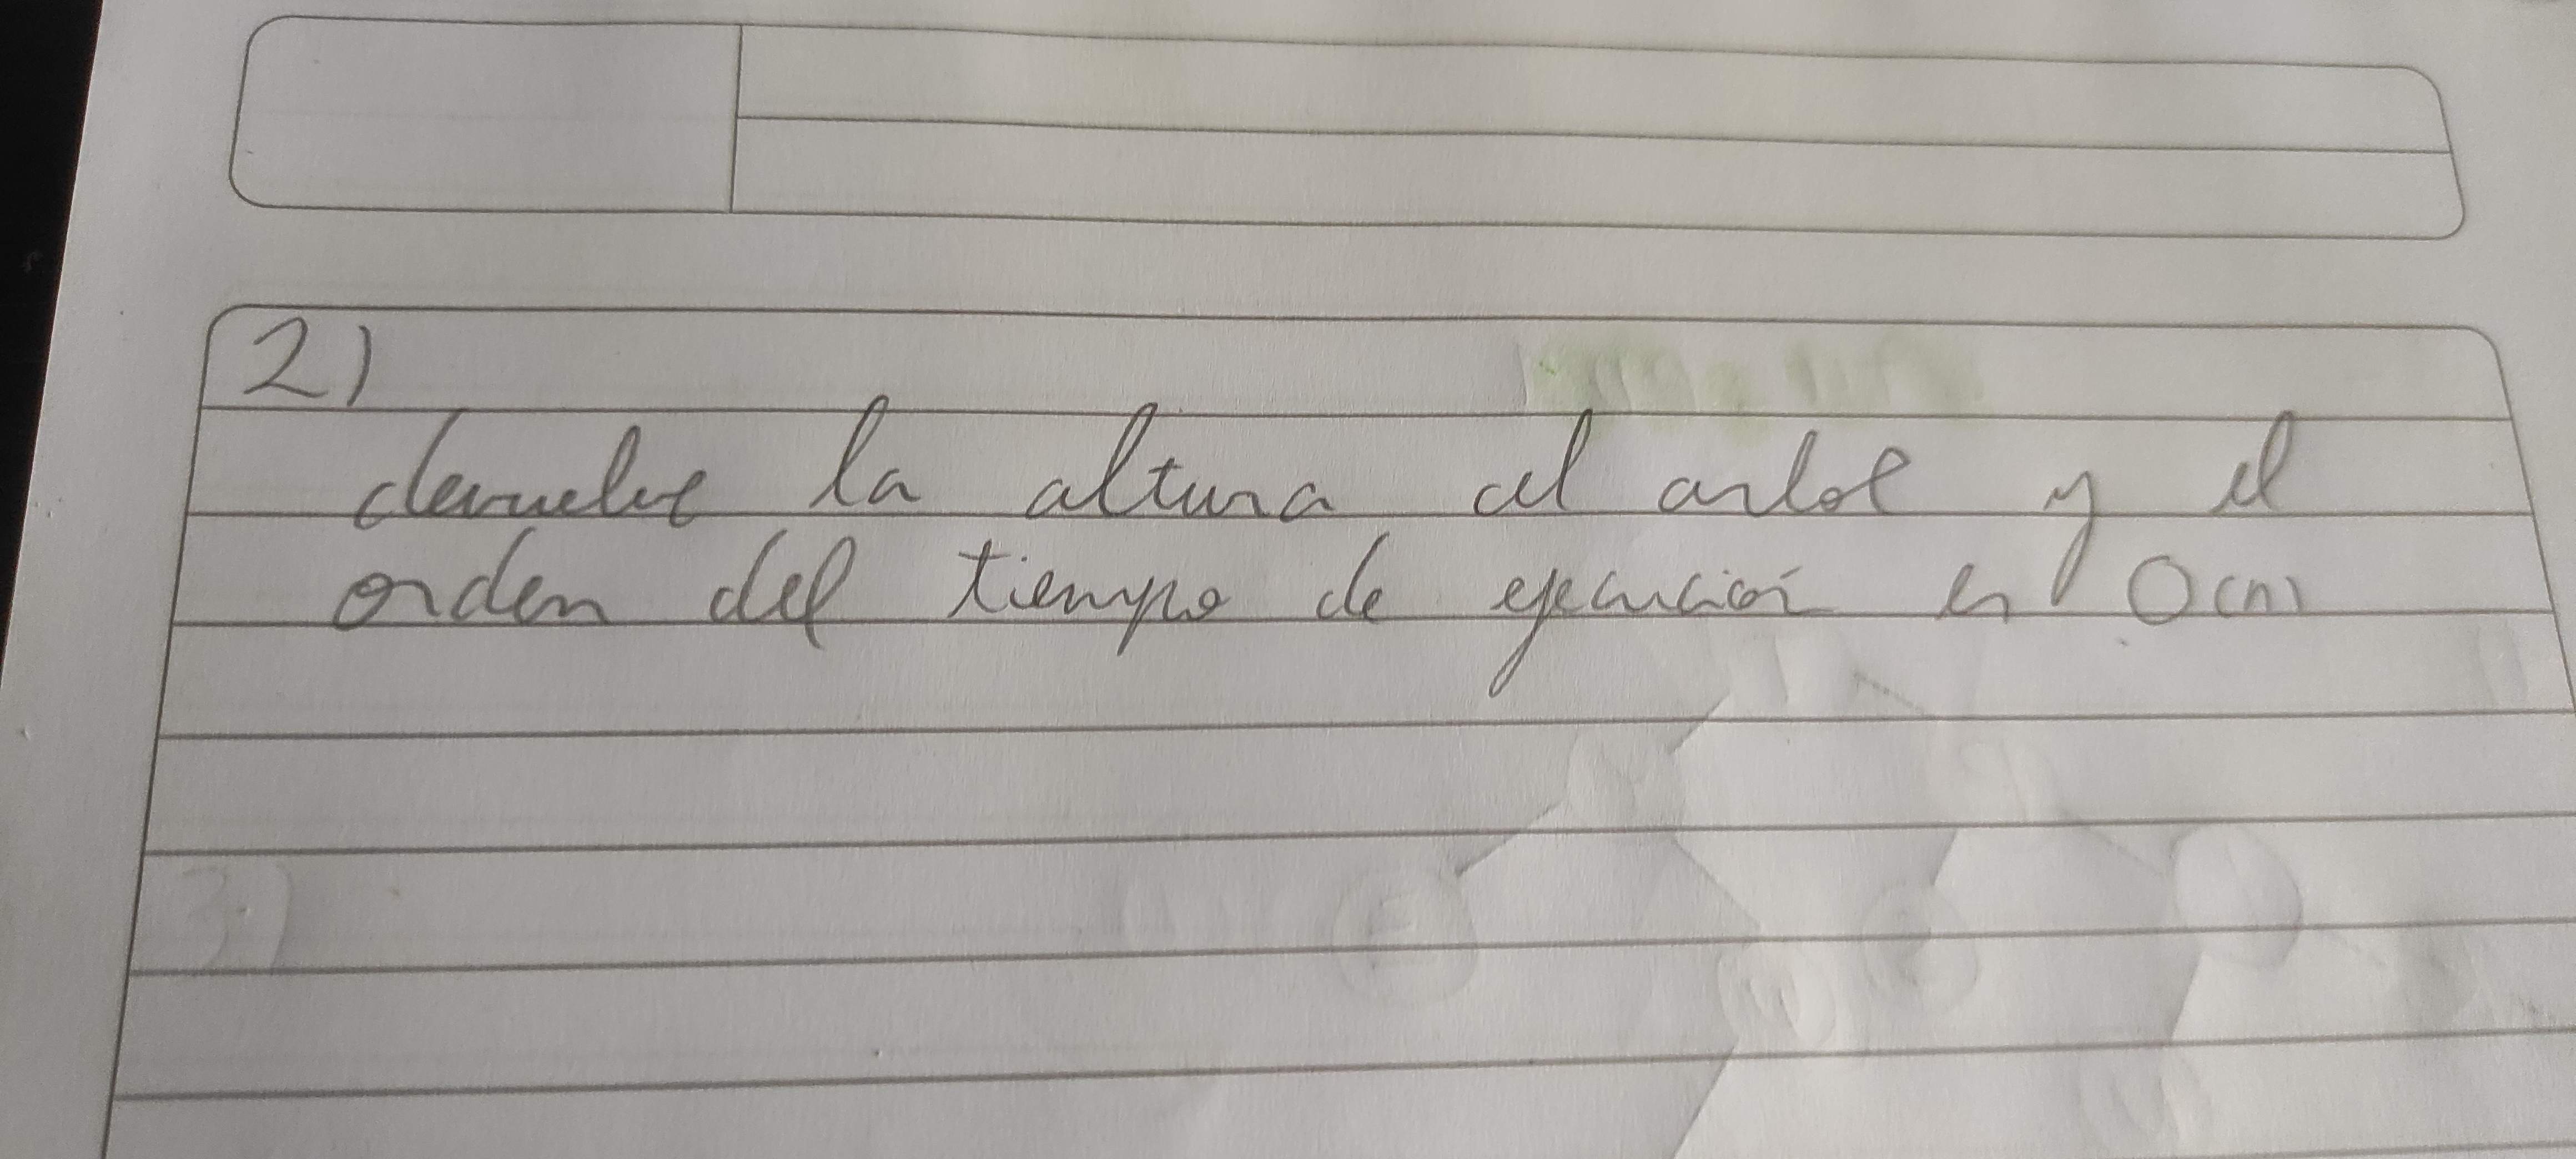 2)
devuelve la altura del arbol y el
orden del tiempo de ejecución es O(n)